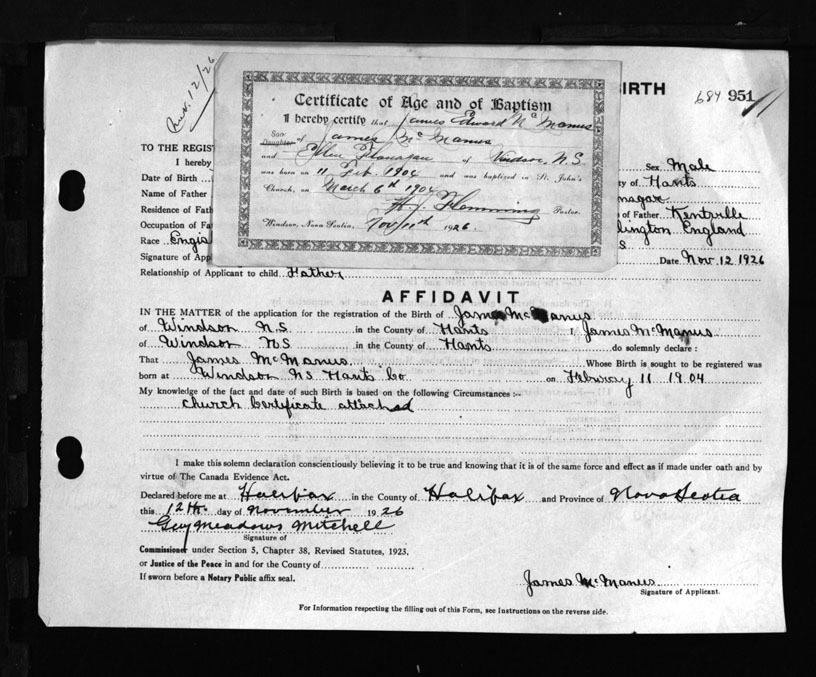 Nov. 12/26
BIRTH
684 951
Certificate of Age and of Baptism
I hereby certify that James Edward Mc Manus
Son
Daughter of James Mc Manus
and Ellen Flanagan of Windsor, N.S.
was born on 11 Feb. 1904 and was baptized in St. John's
Church, on March 6th 1904
H. J. Flemming Pastor.
Windsor, Nova Scotia, Nov 11th 1926.
TO THE REGIST
I hereby Sex Male
Date of Birth ty of Hants
Name of Father
Residence of Fath s of Father Kentville
Occupation of Fa lington England
Race Englis S
Signature of App Date Nov. 12 1926
Relationship of Applicant to child Father
AFFIDAVIT
IN THE MATTER of the application for the registration of the Birth of James McManus
of Windson N.S. in the County of Hants I, James McManus
of Windson N.S in the County of Hants do solemnly declare :
That James McManus Whose Birth is sought to be registered was
born at Windson NS Hants Co on Feburay 11 1904
My knowledge of the fact and date of such Birth is based on the following Circumstances :-
Church Certificate attached
I make this solemn declaration conscientiously believing it to be true and knowing that it is of the same force and effect as if made under oath and by
virtue of The Canada Evidence Act.
Declared before me at Halifax in the County of Halifax and Province of Nova Scotia
this 12th day of November 1926
Guy Meadows Mitchell
Signature of
Commissioner under Section 5, Chapter 38, Revised Statutes, 1923,
or Justice of the Peace in and for the County of
If sworn before a Notary Public affix seal.
James McManus
Signature of Applicant.
For Information respecting the filling out of this Form, see Instructions on the reverse side.